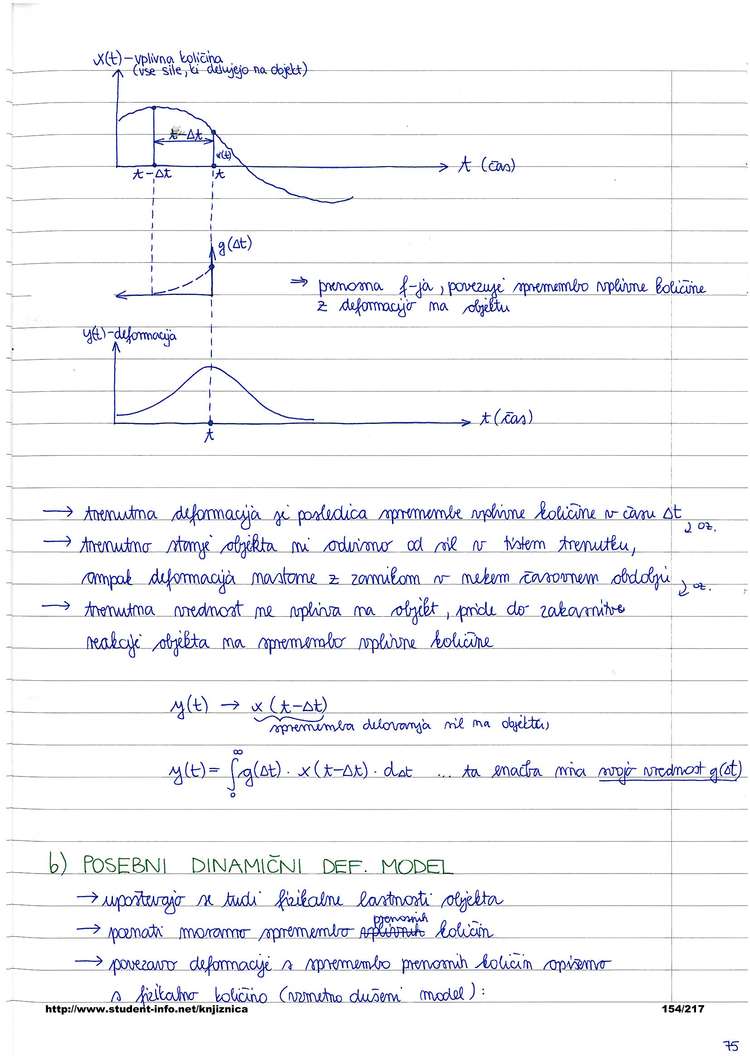 x(t) – vplivna količina
(vse sile, ki delujejo na objekt)
t-Δt
x(t)
t (čas)
t-Δt
t
g(Δt)
⇒ prenosna f-ja, povezuje spremembo vplivne količine
z deformacijo na objektu
y(t)-deformacija
t (čas)
t
→ trenutna deformacija je posledica spremembe vplivne količine v času Δt
oz.
→ trenutno stanje objekta ni odvisno od sil v tistem trenutku,
ampak deformacija nastane z zamikom v nekem časovnem obdobju
oz.
→ trenutna vrednost ne vpliva na objekt, pride do zakasnitve
reakcije objekta na spremembo vplivne količine
y(t) → x (t-Δt)
sprememba delovanja sil na objektu
y(t) = ∫₀^∞ g(Δt) · x(t-Δt) · dΔt ... ta enačba ima svojo vrednost g(Δt)
b) POSEBNI DINAMIČNI DEF. MODEL
→ upoštevajo se tudi fizikalne lastnosti objekta
prenosnih
→ poznati moramo spremembo vplivnih količin
→ povezavo deformacije s spremembo prenosnih količin opišemo
s fizikalno količino (vzmetno dušeni model):
http://www.student-info.net/knjiznica
154/217
75